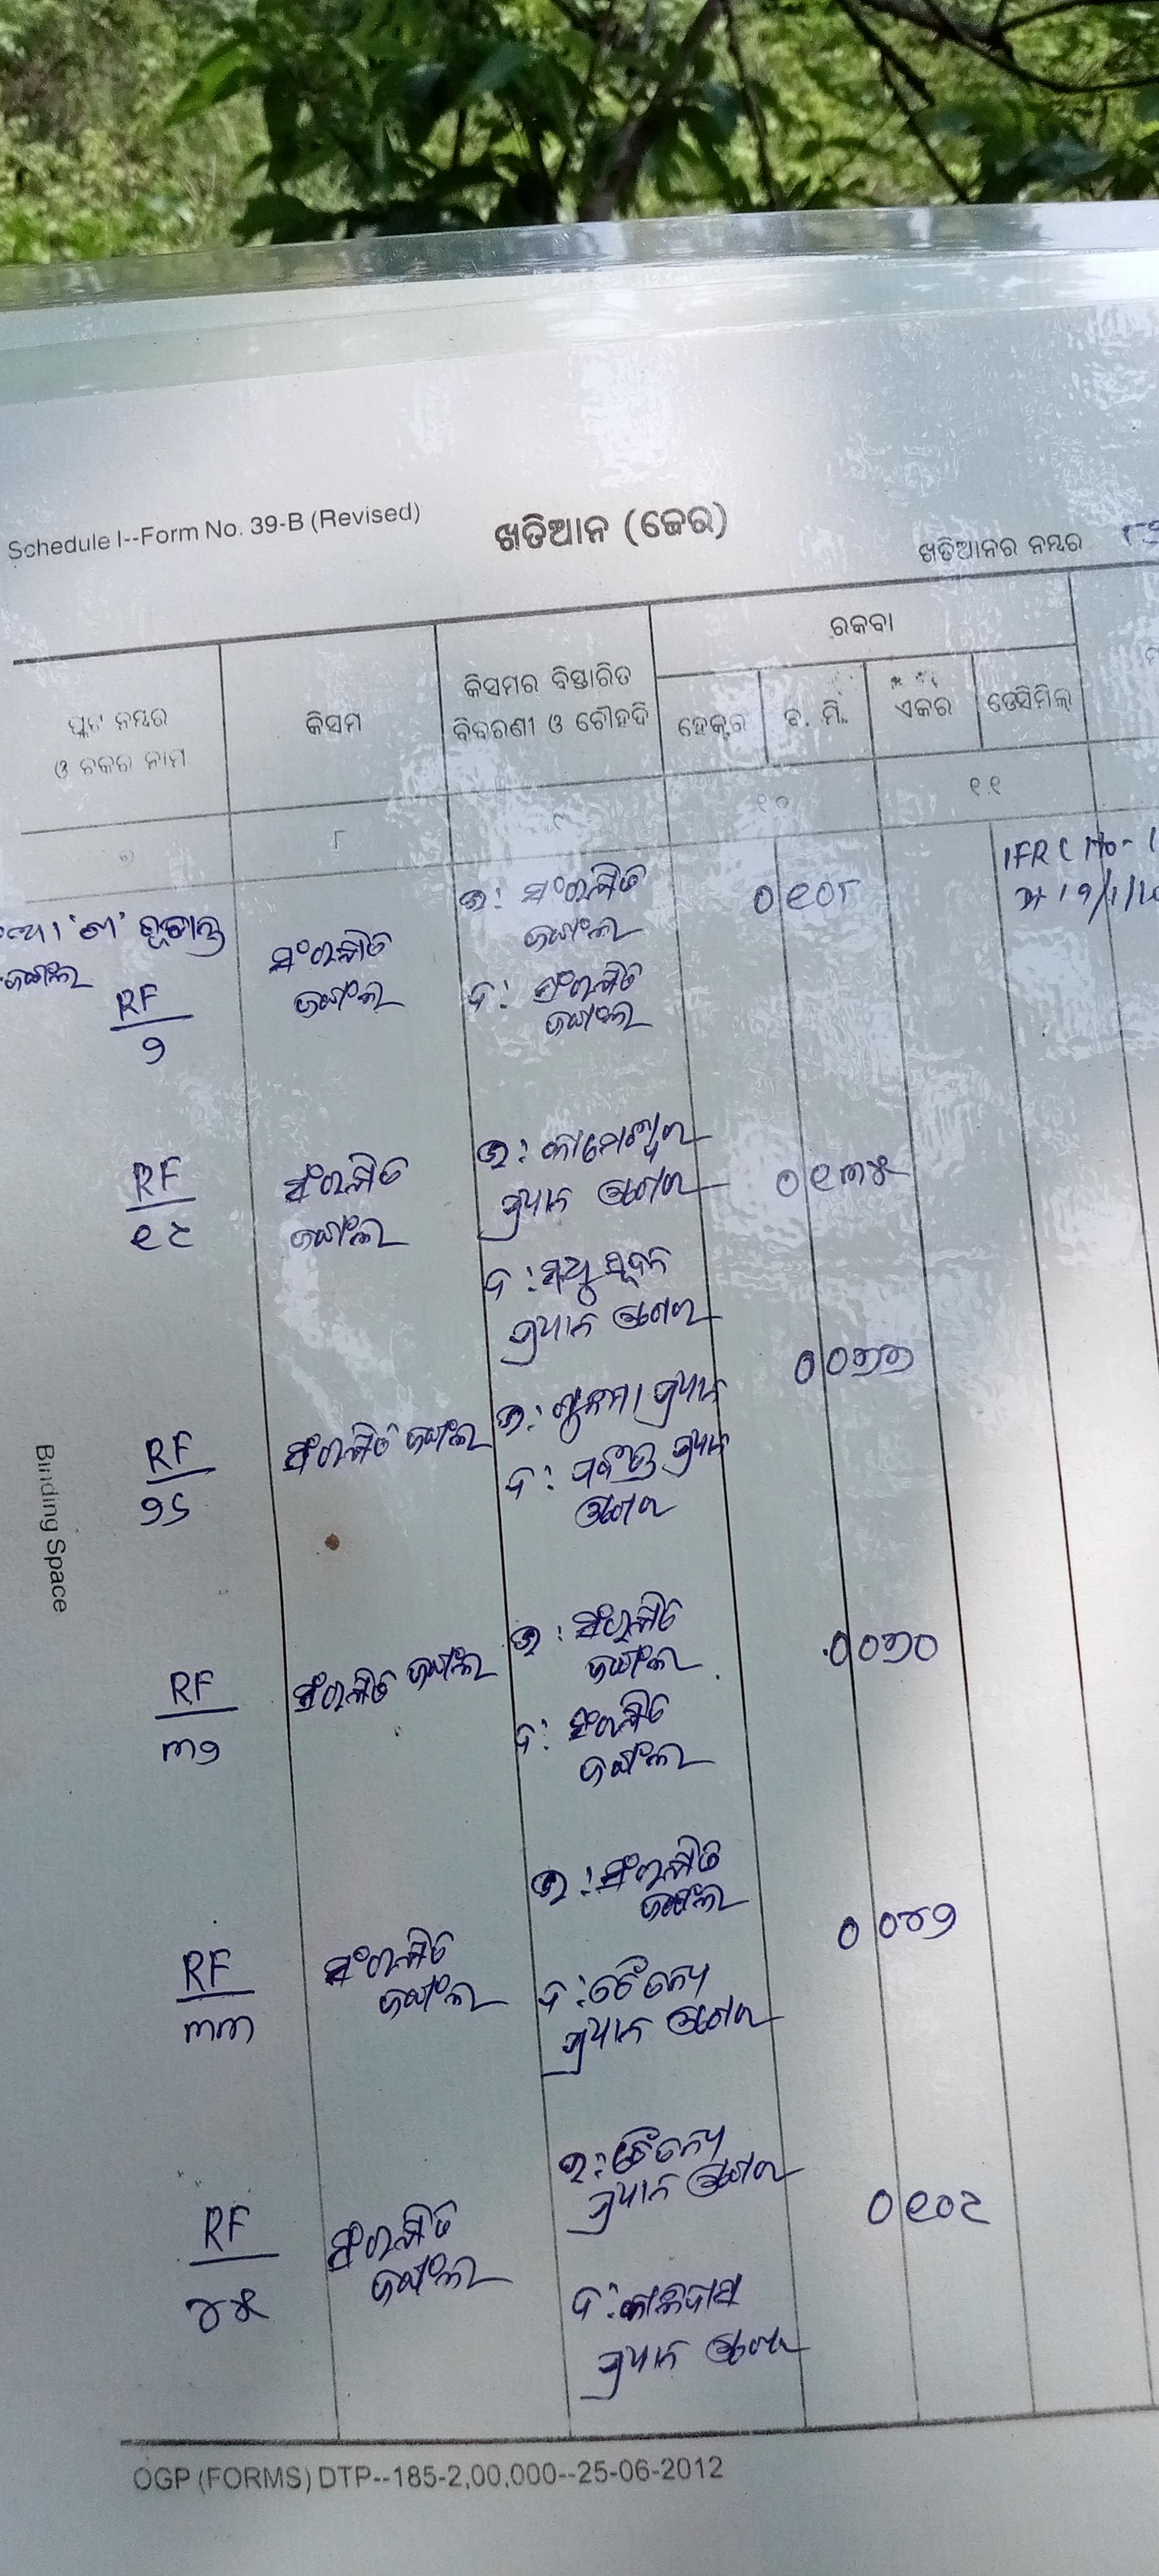 Schedule I--Form No. 39-B (Revised)
ଖତିଆନ (ଜେର)
ଖତିଆନର ନମ୍ବର
ପ୍ଲଟ ନମ୍ବର
ଓ ଚକର ନାମ
କିସମ
କିସମର ବିସ୍ତାରିତ
ବିବରଣୀ ଓ ଚୌହଦି
ରକବା
ହେକ୍ଟର
ବ. ମି.
ଏକର
ଡେସିମିଲ୍
୭
୮
୯
୧୦
୧୧
ଜଙ୍ଗଲ
RF
୨
ସଂରକ୍ଷିତ
ଜଙ୍ଗଲ
ଉ: ସଂରକ୍ଷିତ
ଜଙ୍ଗଲ
ଦ: ସଂରକ୍ଷିତ
ଜଙ୍ଗଲ
୦ ୧୦୮
IFRC No-
RF
୧୯
ସଂରକ୍ଷିତ
ଜଙ୍ଗଲ
ଉ: କାମେଶ୍ୱର
ପ୍ରଧାନ
ଦ: ମଧୁସୂଦନ
ପ୍ରଧାନ
୦ ୧୩୪
RF
୨୬
ସଂରକ୍ଷିତ ଜଙ୍ଗଲ
ଉ: ପ୍ରଧାନ
ଦ: ପ୍ରଧାନ
୦ ୦୭୭
RF
୩୨
ସଂରକ୍ଷିତ ଜଙ୍ଗଲ
ଉ: ସଂରକ୍ଷିତ
ଜଙ୍ଗଲ
ଦ: ସଂରକ୍ଷିତ
ଜଙ୍ଗଲ
୦ ୦୭୦
RF
୩୩
ସଂରକ୍ଷିତ
ଜଙ୍ଗଲ
ଉ: ସଂରକ୍ଷିତ
ଜଙ୍ଗଲ
ଦ: ଚୈତନ୍ୟ
ପ୍ରଧାନ
୦ ୦୪୨
RF
୪୫
ସଂରକ୍ଷିତ
ଜଙ୍ଗଲ
ଉ: ଚୈତନ୍ୟ
ପ୍ରଧାନ
ଦ: କାଳିଦାସ
ପ୍ରଧାନ
୦ ୧୦୯
Binding Space
OGP (FORMS) DTP--185-2,00,000--25-06-2012